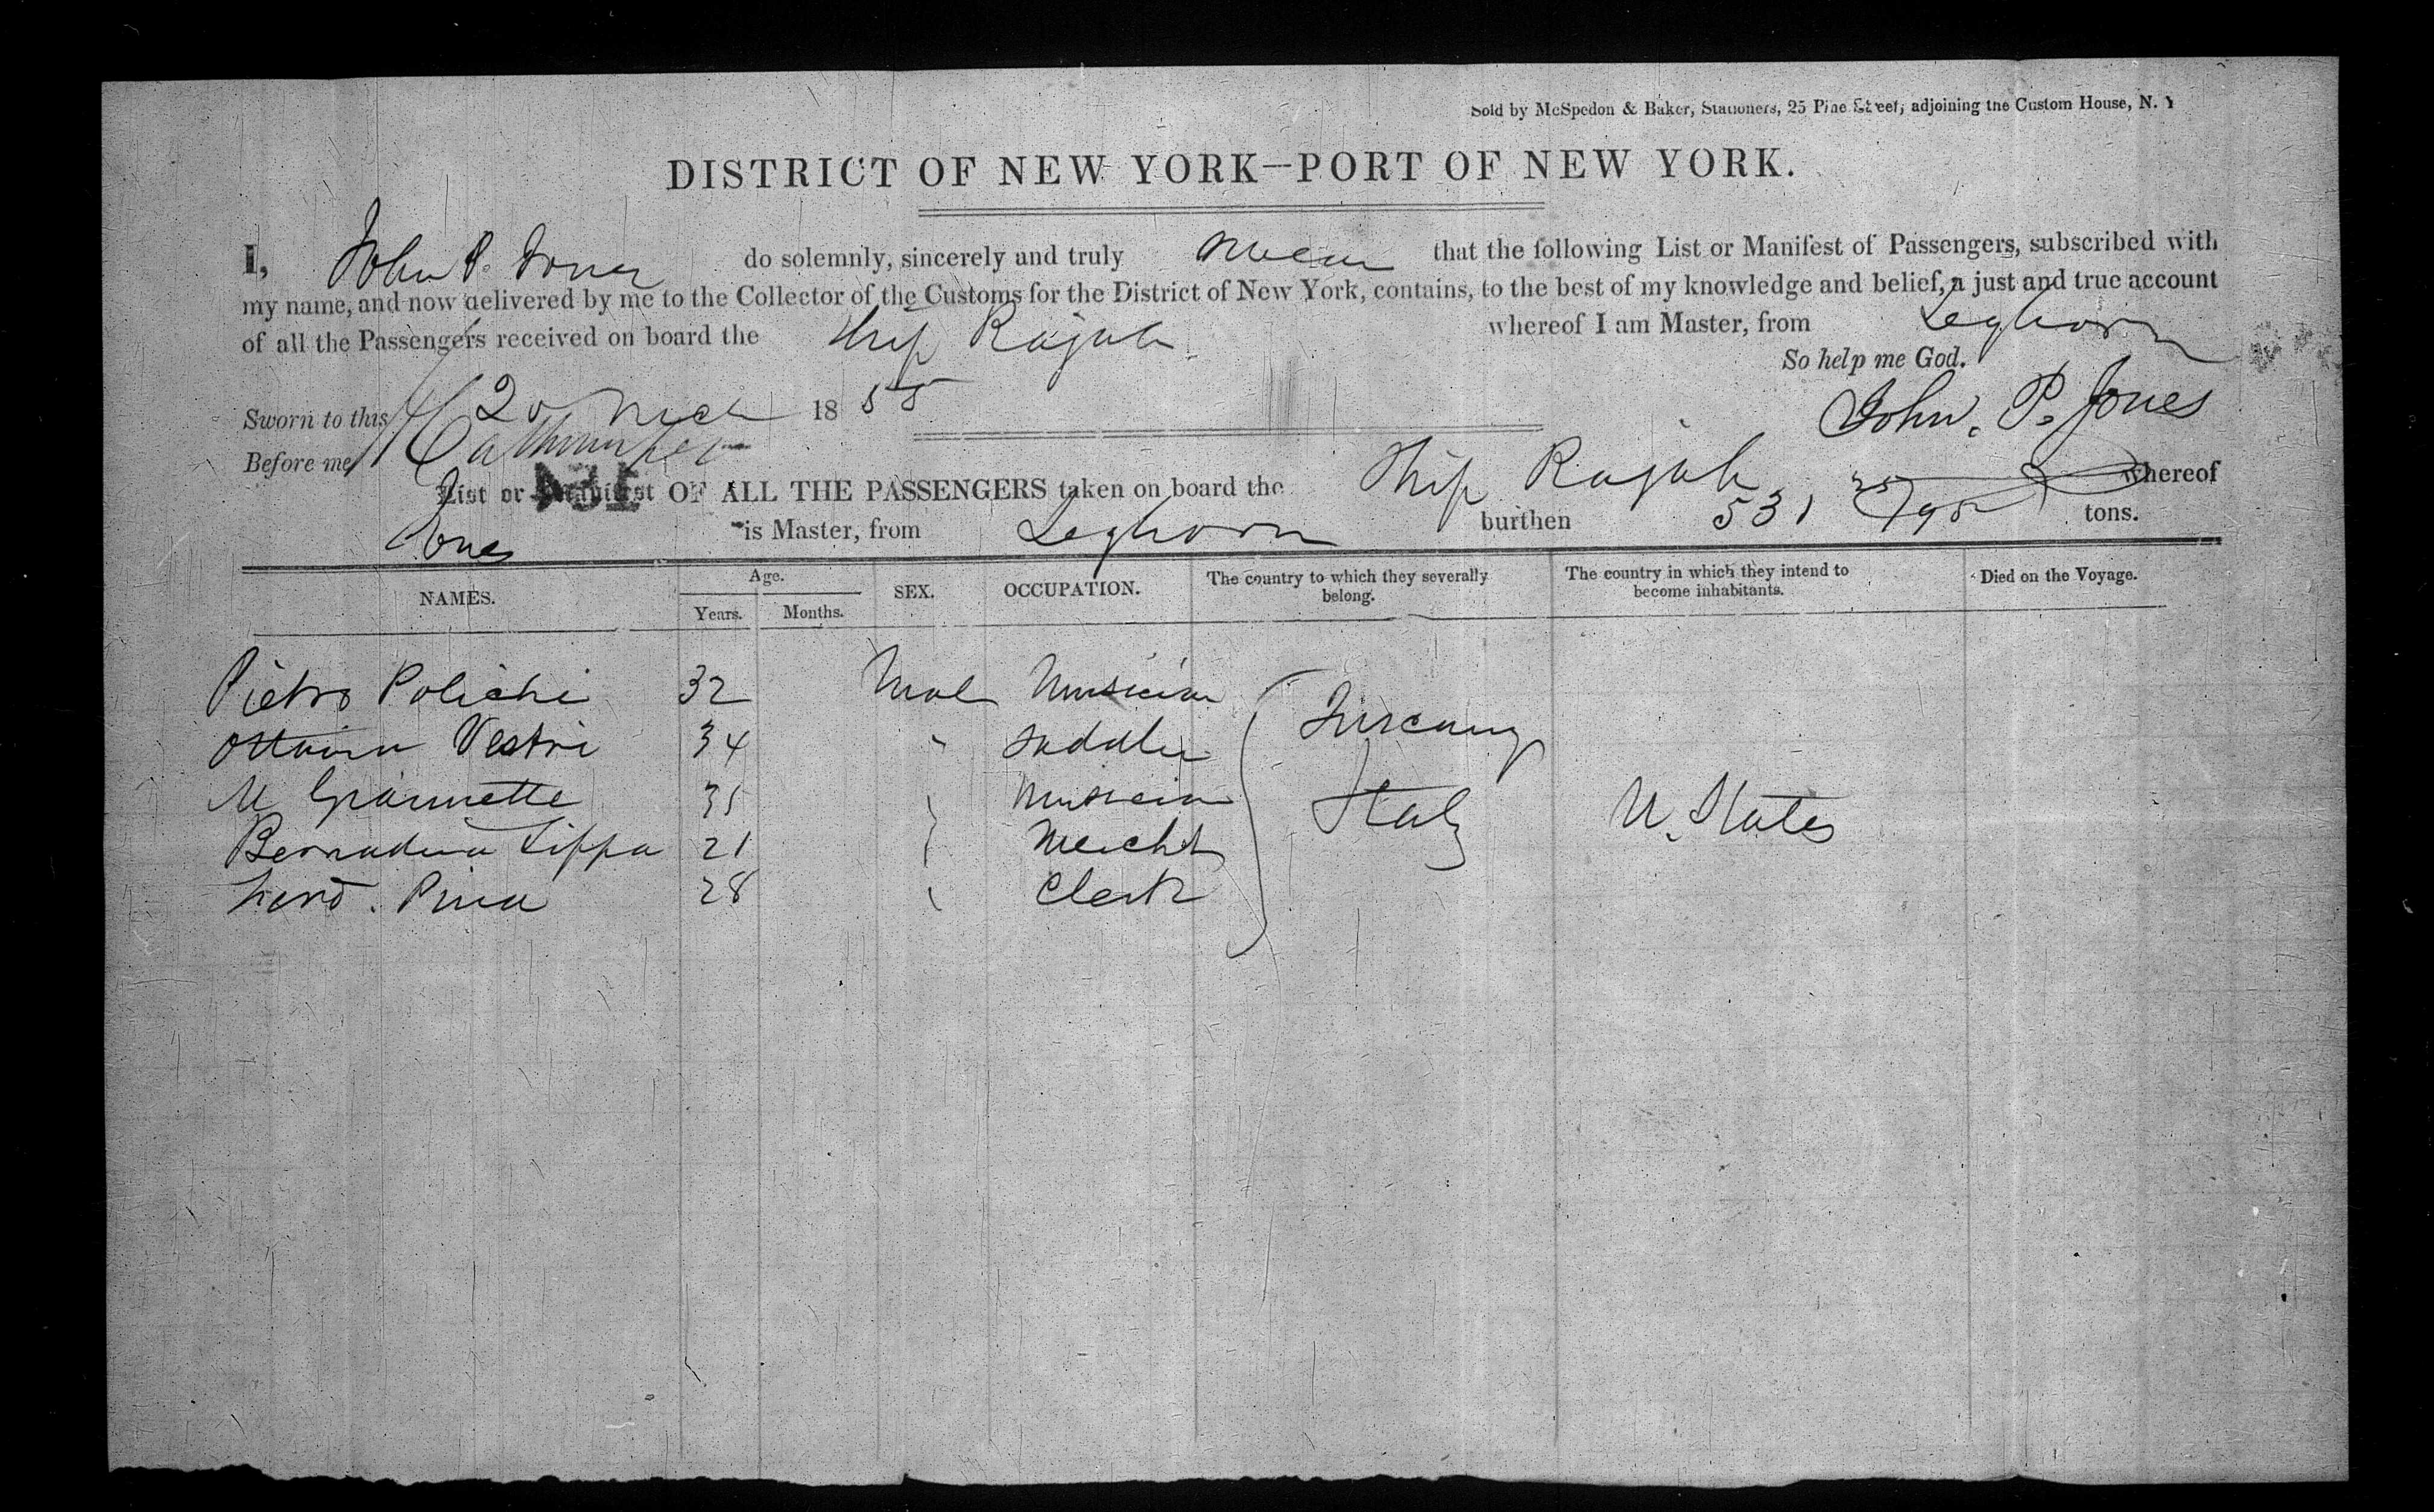 Sold by McSpedon & Baker, Stationers, 25 Pine Street, adjoining the Custom House, N. Y
DISTRICT OF NEW YORK—PORT OF NEW YORK.
I, John P. Jones do solemnly, sincerely and truly swear that the following List or Manifest of Passengers, subscribed with
my name, and now delivered by me to the Collector of the Customs for the District of New York, contains, to the best of my knowledge and belief, a just and true account
of all the Passengers received on board the Ship Rajah whereof I am Master, from Leghorn
So help me God.
Sworn to this 20 1855 John. P. Jones
Before me
List or Manifest OF ALL THE PASSENGERS taken on board the Ship Rajah whereof
Jones is Master, from Leghorn burthen 531 25/95 tons.
NAMES. Age. SEX. OCCUPATION. The country to which they severally belong. The country in which they intend to become inhabitants. Died on the Voyage.
Years. Months.
Pietro Polichi 32 Male Musician
Vestri 34 " Saddler Tuscany
M 35 Musician Italy U. States
Bernadina Lippa 21 Mercht
Pina 28 Clerk